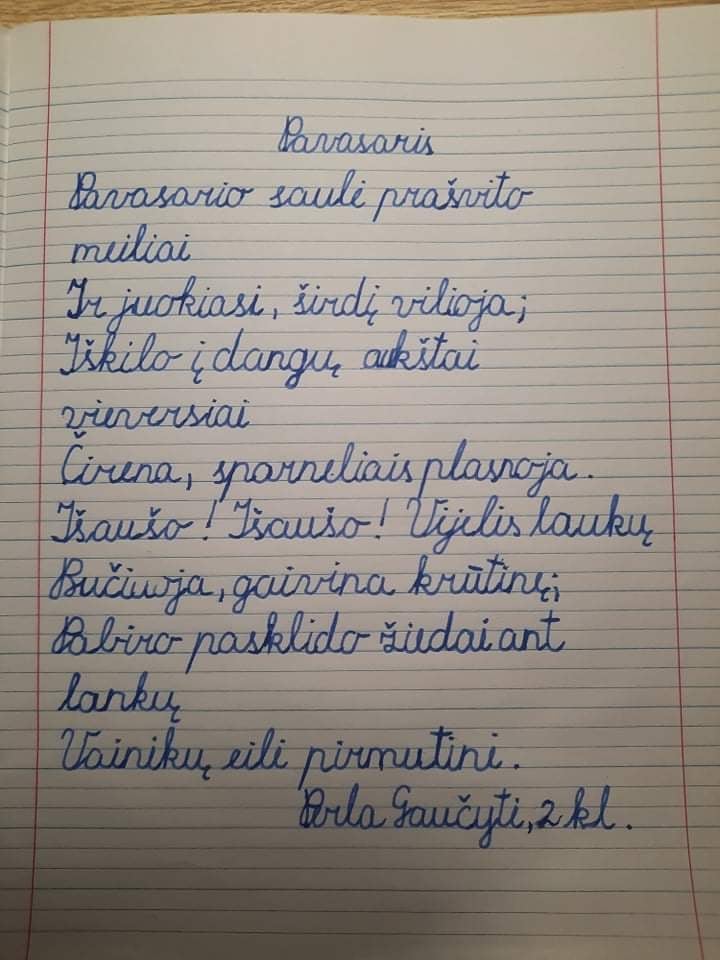 Pavasaris
Pavasario saulė prašvito
meiliai
Ir juokiasi, širdį vilioja;
Iškilo į dangų aukštai
vieversiai
Čirena, sparneliais plasnoja.
Išaušo! Išaušo! Vėjelis laukų
Bučiuoja, gaivina krūtinę;
Pabiro pasklido žiedai ant
lankų
Vainikų eilė pirmutinė.
Perla Gaučytė, 2 kl.